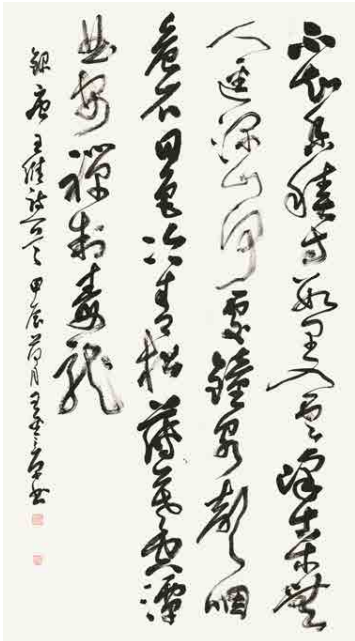 不知香積寺數里入雲峰古木無
人逕深山何處鐘泉聲咽
危石日色冷青松薄暮空潭
曲安禪制毒龍
錄唐王維詩一首甲辰荷月書